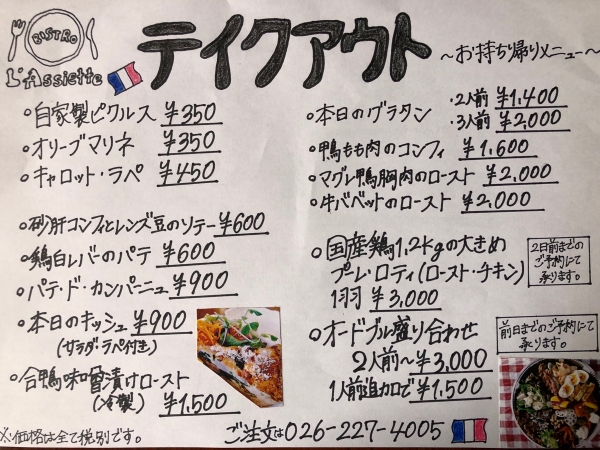 BISTRO
L'Assiette
テイクアウト
～お持ち帰りメニュー～
○自家製ピクルス ¥350
○オリーブマリネ ¥350
○キャロット・ラペ ¥450
○砂肝コンフィとレンズ豆のソテー¥600
○鶏白レバーのパテ ¥600
○パテ・ド・カンパーニュ ¥900
○本日のキッシュ ¥900
(サラダ・ラペ付き)
○合鴨味噌漬けロースト
(冷製) ¥1,500
※価格は全て税別です。
○本日のグラタン ・2人前 ¥1,400
・3人前 ¥2,000
○鴨もも肉のコンフィ ¥1,600
○マグレ鴨胸肉のロースト ¥2,000
○牛バベットのロースト ¥2,000
○国産鶏1,2kgの大きめ
プーレ・ロティ(ロースト・チキン)
1羽 ¥3,000
2日前までの
ご予約にて
承ります。
○オードブル盛り合わせ
2人前～¥3,000
1人前追加で¥1,500
前日までのご予約にて
承ります。
ご注文は026-227-4005